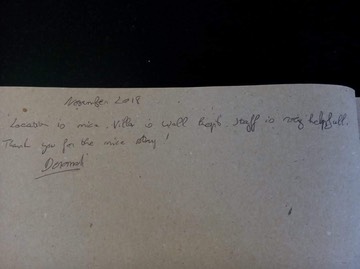 November 2018
Location is nice. Villa is well kept staff is very helpfull.
Thank you for the nice stay!